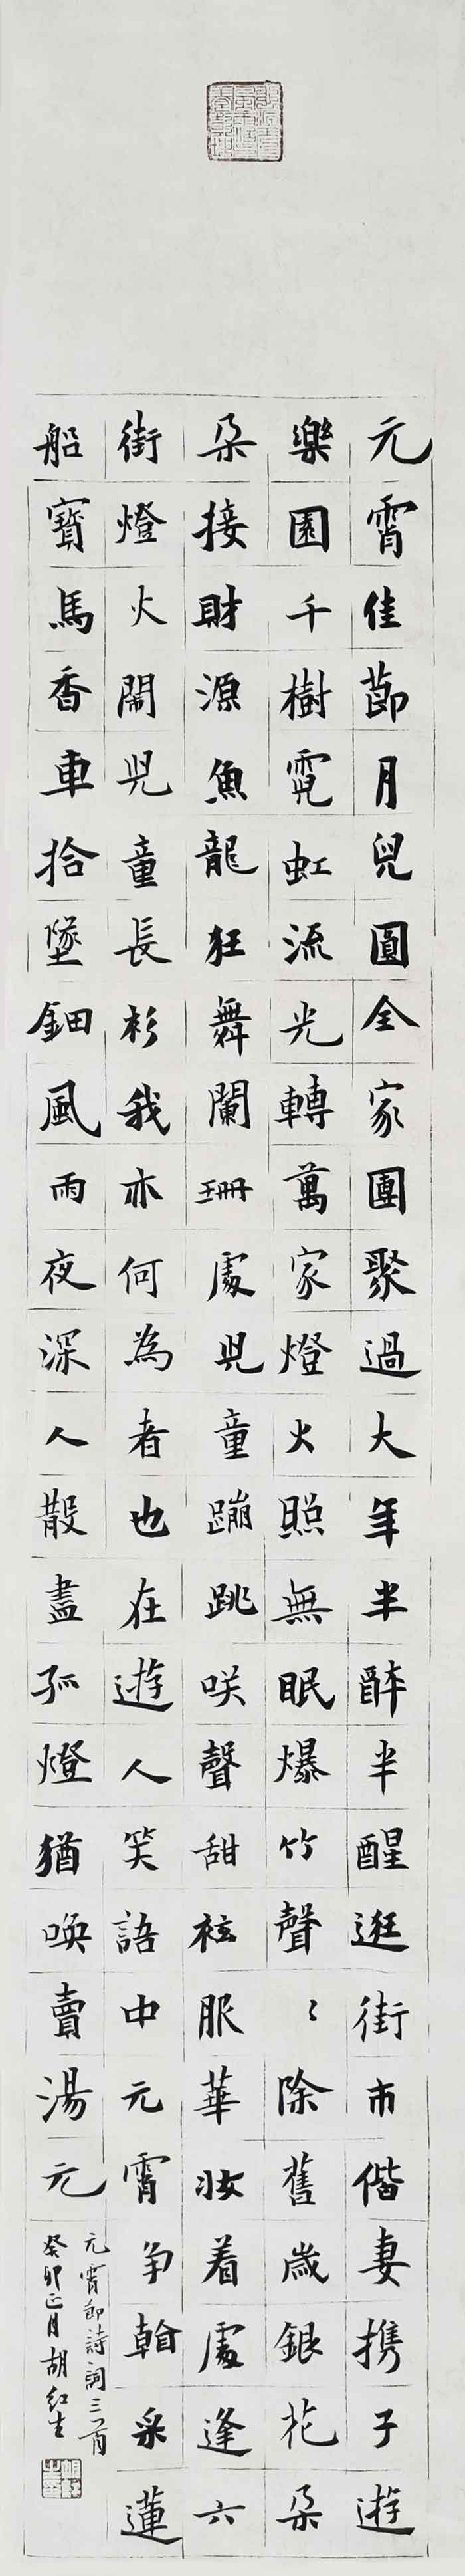 元霄佳節月兒圓全家團聚過大年半醉半醒逛街市偕妻携子遊
樂園千樹霓虹流光轉萬家燈火照無眠爆竹聲〻除舊歲銀花朵
朵接財源魚龍狂舞闌珊處兒童蹦跳咲聲甜袨服華妝着處逢六
街燈火鬧兒童長衫我亦何為者也在遊人笑語中元霄争翰采蓮
船寶馬香車拾墜鈿風雨夜深人散盡孤燈猶喚賣湯元
元霄節詩詞三首
癸卯正月胡紅生